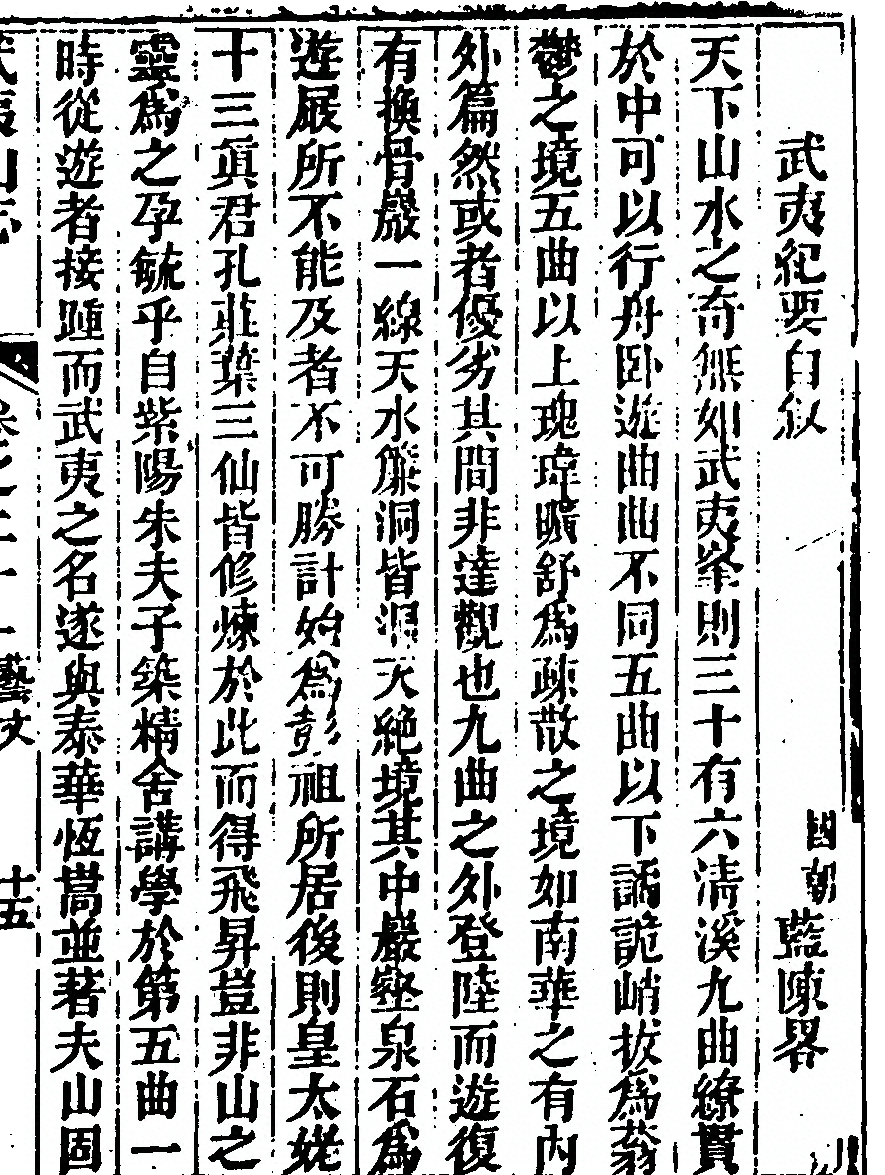 武夷紀要自叙 國朝 藍陳畧
天下山水之奇無如武夷峯則三十有六淸溪九曲繚貫
於中可以行舟卧遊曲曲不同五曲以下譎詭峭拔爲蓊
鬱之境五曲以上瑰瑋曠舒爲疎散之境如南華之有內
外篇然或者優劣其間非達觀也九曲之外登陸而遊復
有換骨巖一線天水簾洞皆洞天絶境其中巖壑泉石爲
遊屐所不能及者不可勝計始爲彭祖所居後則皇太姥
十三眞君孔莊葉三仙皆修煉於此而得飛昇豈非山之
靈爲之孕毓乎自紫陽朱夫子築精舍講學於第五曲一
時從遊者接踵而武夷之名遂與泰華恆嵩並著夫山固
武夷山志 卷之二十一 藝文 十五